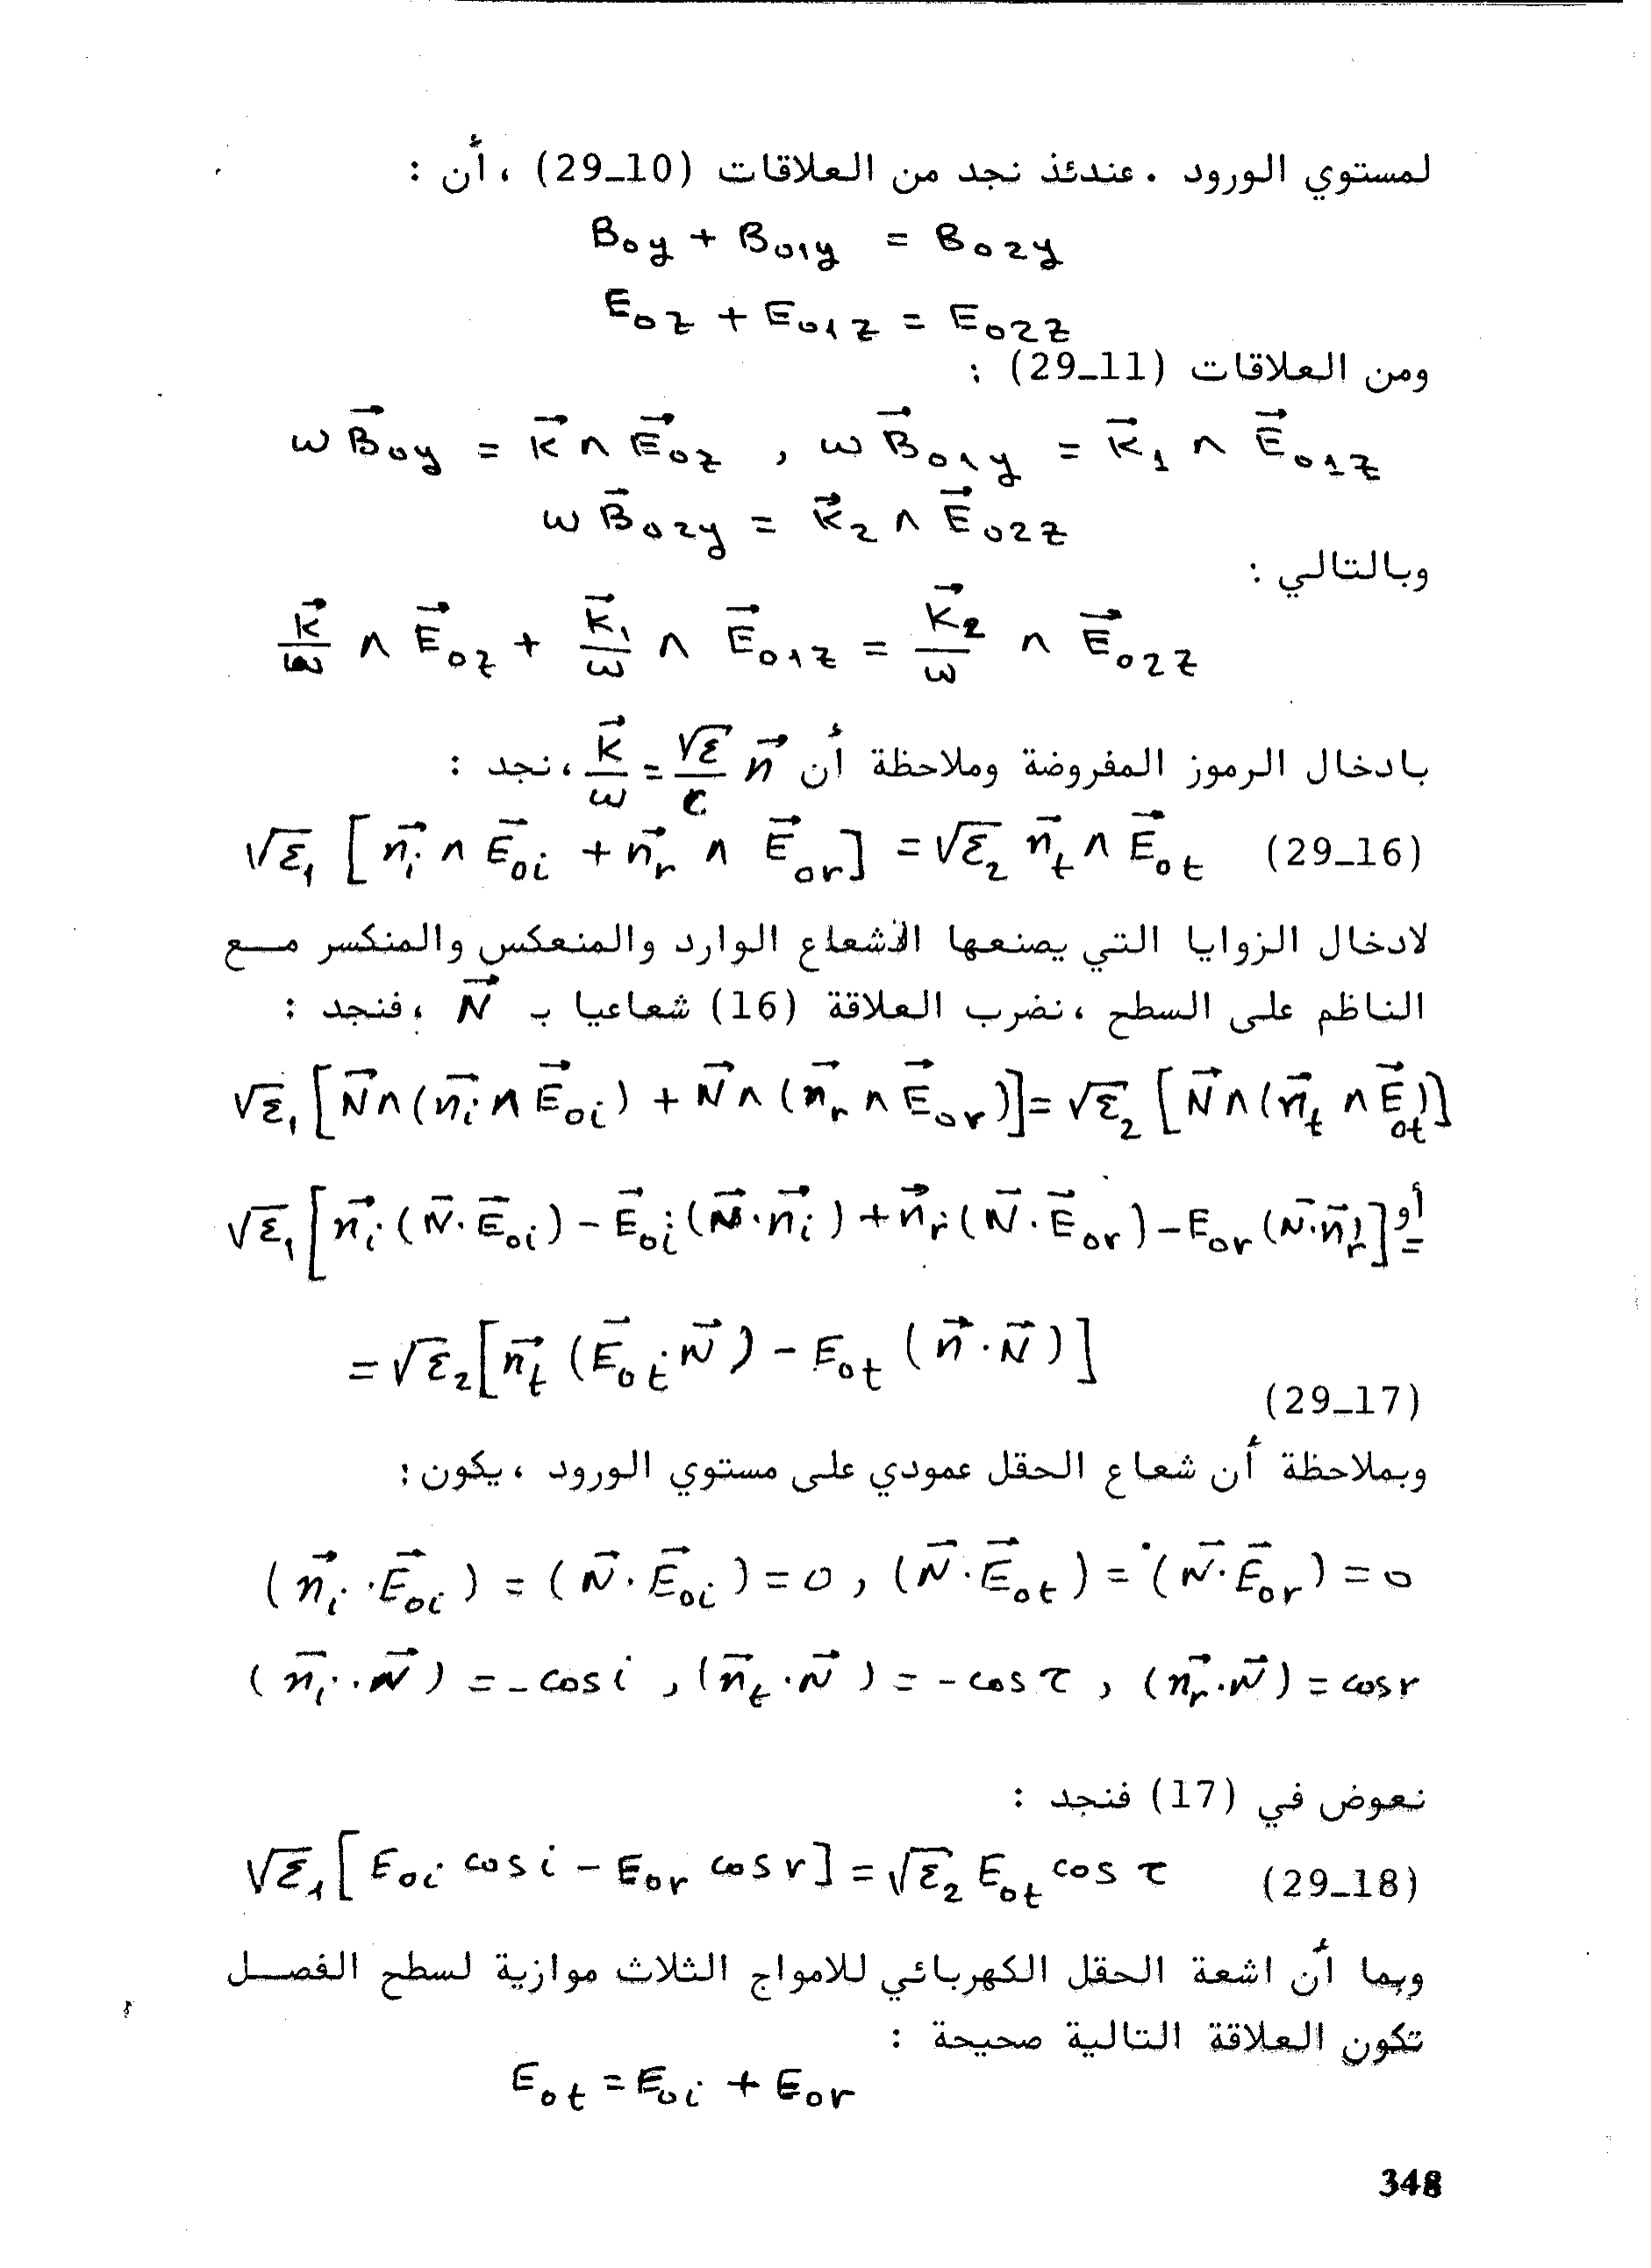 لمستوي الورود . عندئذ نجد من العلاقات (10_29) ، أن :
B₀y + B₀₁y = B₀₂y
E₀z + E₀₁z = E₀₂z
ومن العلاقات (11_29) :
ω B⃗₀y = K⃗ ∧ E⃗₀z , ω B⃗₀₁y = K⃗₁ ∧ E⃗₀₁z
ω B⃗₀₂y = K⃗₂ ∧ E⃗₀₂z
وبالتالي :
K⃗/ω ∧ E⃗₀z + K⃗₁/ω ∧ E⃗₀₁z = K⃗₂/ω ∧ E⃗₀₂z
بادخال الرموز المفروضة وملاحظة أن K⃗/ω = √ε/c n⃗ ، نجد :
√ε₁ [n⃗i ∧ E⃗oi + n⃗r ∧ E⃗or] = √ε₂ n⃗t ∧ E⃗ot (29_16)
لادخال الزوايا التي يصنعها الاشعاع الوارد والمنعكس والمنكسر مـع
الناظم على السطح ، نضرب العلاقة (16) شعاعيا بـ N⃗ ، فنجد :
√ε₁ [N⃗∧(n⃗i ∧ E⃗oi) + N⃗∧(n⃗r ∧ E⃗or)] = √ε₂ [N⃗∧(n⃗t ∧ E⃗ot)]
أو √ε₁ [n⃗i(N⃗·E⃗oi) − E⃗oi(N⃗·n⃗i) + n⃗r(N⃗·E⃗or) − Eor(N⃗·n⃗r)] =
= √ε₂ [n⃗t (E⃗ot·N⃗) − Eot (n⃗·N⃗)]
(29_17)
وبملاحظة أن شعاع الحقل عمودي على مستوي الورود ، يكون :
(n⃗i·E⃗oi) = (N⃗·E⃗oi) = 0 , (N⃗·E⃗ot) = (N⃗·E⃗or) = 0
(n⃗i·N⃗) = −cos i , (n⃗t·N⃗) = −cos τ , (n⃗r·N⃗) = cos r
نعوض في (17) فنجد :
√ε₁ [Eoi cos i − Eor cos r] = √ε₂ Eot cos τ (29_18)
وبما أن اشعة الحقل الكهربائي للامواج الثلاث موازية لسطح الفصـل
تكون العلاقة التالية صحيحة :
Eot = Eoi + Eor
348